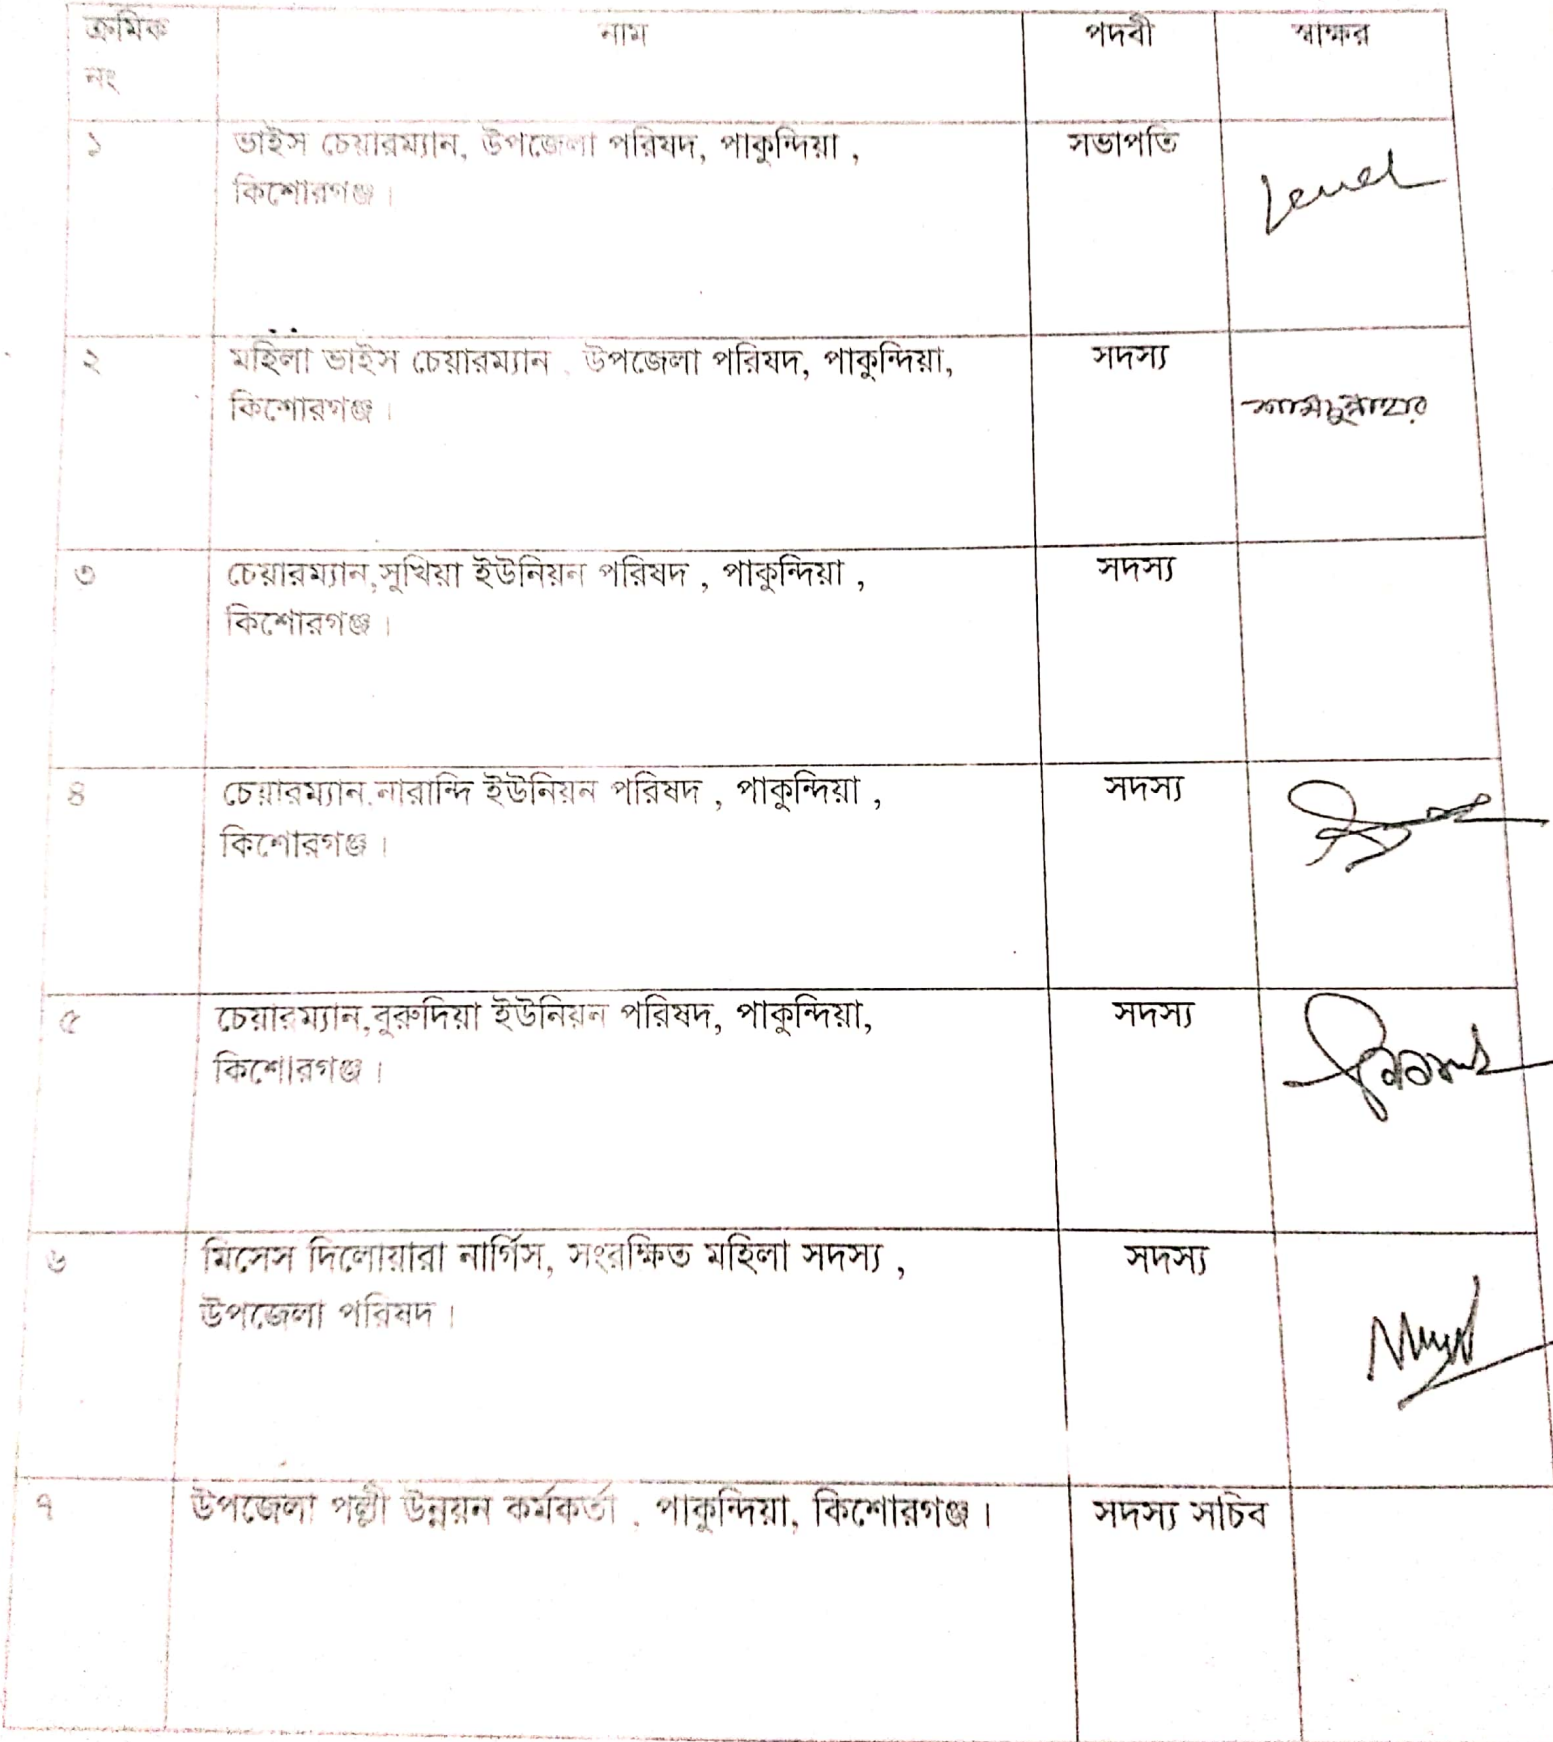 ক্রমিক নাম পদবী স্বাক্ষর
নং
১ ভাইস চেয়ারম্যান, উপজেলা পরিষদ, পাকুন্দিয়া , সভাপতি
কিশোরগঞ্জ।
২ মহিলা ভাইস চেয়ারম্যান , উপজেলা পরিষদ, পাকুন্দিয়া, সদস্য
কিশোরগঞ্জ।
শামছুন্নাহার
৩ চেয়ারম্যান,সুখিয়া ইউনিয়ন পরিষদ , পাকুন্দিয়া , সদস্য
কিশোরগঞ্জ।
৪ চেয়ারম্যান,নারান্দি ইউনিয়ন পরিষদ , পাকুন্দিয়া , সদস্য
কিশোরগঞ্জ।
৫ চেয়ারম্যান,বুরুদিয়া ইউনিয়ন পরিষদ, পাকুন্দিয়া, সদস্য
কিশোরগঞ্জ।
৬ মিসেস দিলোয়ারা নার্গিস, সংরক্ষিত মহিলা সদস্য , সদস্য
উপজেলা পরিষদ।
৭ উপজেলা পল্লী উন্নয়ন কর্মকর্তা , পাকুন্দিয়া, কিশোরগঞ্জ। সদস্য সচিব